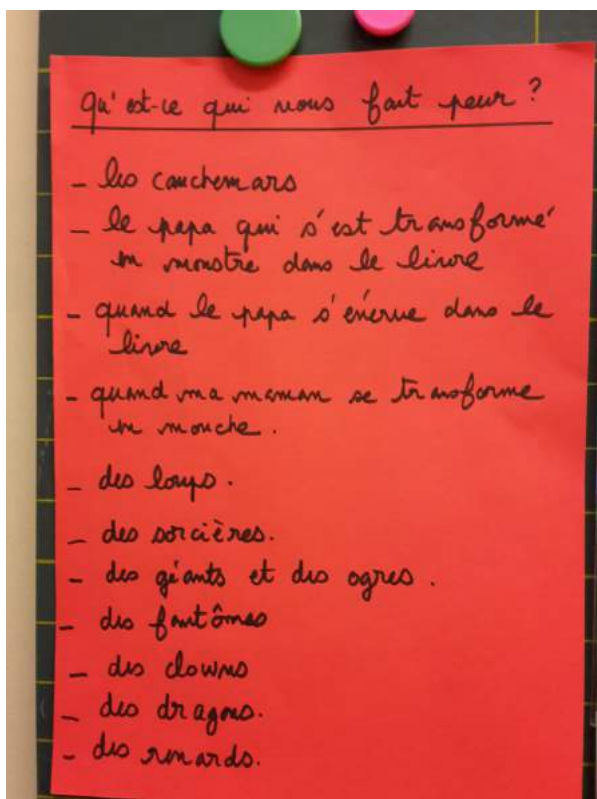 Qu'est-ce qui nous fait peur ?
- les cauchemars
- le papa qui s'est transformé
en monstre dans le livre
- quand le papa s'énerve dans le
livre
- quand ma maman se transforme
en mouche.
- des loups.
- des sorcières.
- des géants et des ogres.
- des fantômes
- des clowns
- des dragons.
- des renards.